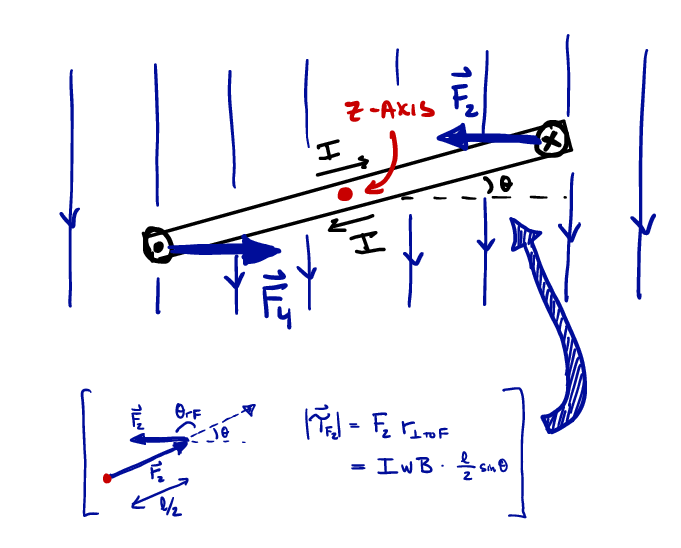 Z-AXIS
F⃗₂
I
θ
I
F⃗₄
F⃗₂
θrF
θ
F⃗₂
l/2
|τ⃗F₂| = F₂ r⊥ to F
= I w B · l/2 sin θ